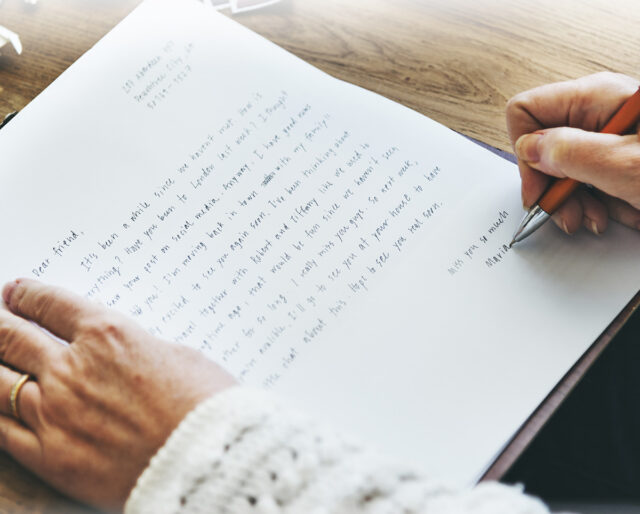 Dear friend,
It's been a while since we haven't met. How is
everything? Have you been to London last week? I thought
saw your post on social media. Anyway, I have good news
you! I'm moving back in town with my family!!
excited to see you again soon. I've been thinking about
travel together with Robert and Tiffany like we used to
longtime ago, that would be fun since we haven't seen
other for so long. I really miss you guys. So next week,
you're available. I'll go to see you at your house to have
little chat about this. Hope to see you real soon.
Miss you so much
Maria